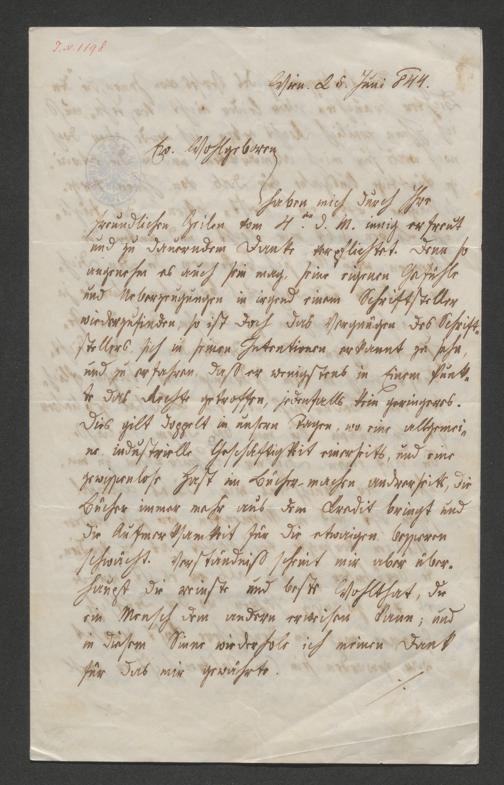 J.N. 1198
Wien. 26. Juni 844.
Ew. Wohlgeboren
haben mich durch Ihre
freundlichen Zeilen vom 4ten d. M. innig erfreut
und zu dauerndem Danke verpflichtet. Denn so
angenehm es auch sein mag, seine eigenen Gefühle
und Ueberzeugungen in irgend einem Schriftsteller
wiederzufinden, so ist doch das Vergnügen des Schrift-
stellers sich in seinen Intentionen erkannt zu sehn,
und zu erfahren, daß er wenigstens in Einem Punk-
te das Rechte getroffen, jedenfalls kein geringeres.
Dies gilt doppelt in unsern Tagen, wo eine allgemei-
ne industrielle Geschäftigkeit einerseits, und eine
gewissenlose Hast im Bücher-machen andrerseits, die
Bücher immer mehr aus dem Credit bringt und
die Aufmerksamkeit für die etwaigen besseren
schwächt. Verständniß scheint mir aber über-
haupt die reinste und beste Wohlthat, die
ein Mensch dem andern erweisen kann; und
in diesem Sinne wiederhole ich meinen Dank
für das mir gewährte.